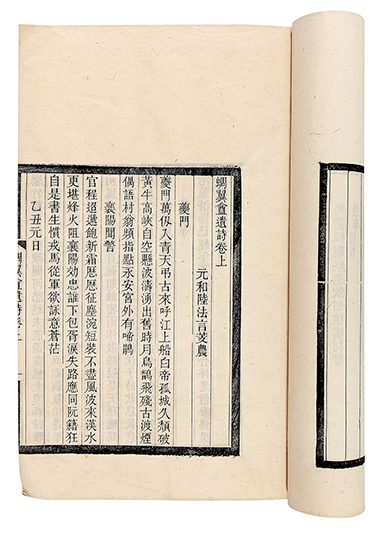 蜩翼盦遺詩卷上
元和陸法言菱農
夔門
夔門萬仞入青天弔古來呼江上船白帝孤城久頹破
黃牛高峽自空懸波濤湧出舊時月烏鵲飛殘古渡煙
偶語村翁頻指點永安宮外有啼鵑
襄陽聞警
官程迢遞飽新霜歷歷征塵涴短裝不盡風波來漢水
更堪烽火阻襄陽効忠誰下包胥淚失路應同阮籍狂
自是書生慣戎馬從軍欲詠意蒼茫
乙丑元日
蜩翼盦遺詩卷上